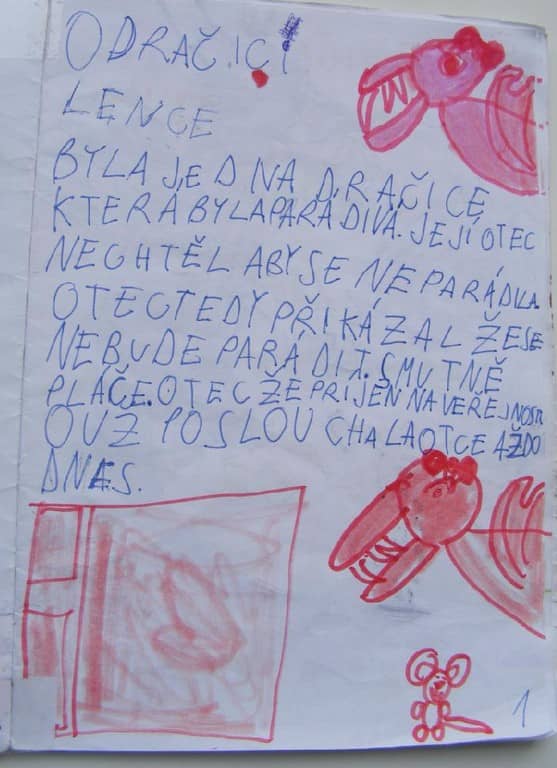 O DRAČICI
LENCE
BYLA JEDNA DRAČICE
KTERÁ BYLA PARÁDIVÁ. JEJÍ OTEC
NECHTĚL ABY SE NEPARÁDILA
OTEC TEDY PŘIKÁZAL ŽE SE
NEBUDE PARÁDIT. SMUTNĚ
PLÁČE. OTEC ŽE PRIJEN NA VEŘEJNOST
OUZ POSLOUCHALA OTCE AŽ DO
DNES.
1